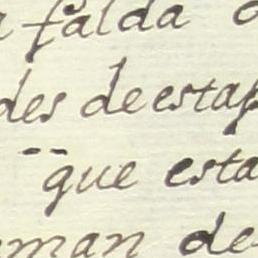 falda
des de esta
que esta
man de